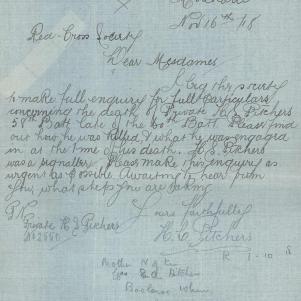 Nov 16th /18
Red Cross Society
Dear Mesdames
I beg this society
to make full enquiry for full particulars
concerning the death of Private H S Pitchers
58th Batt late of the 60th Batt Please find
out how he was killed & what he was engaged
in at the time of his death. H. S. Pitchers
was a signaller. Please make this enquiry as
urgent as possible. Awaiting to hear from
you what steps you are taking
Yours faithfully
Private H S Pitchers
Pitchers
R 1-10
Mother N of Kin
Pitchers